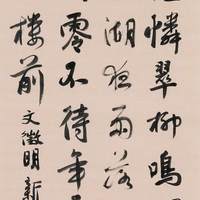 憐翠柳鳴
湖夜雨落
零不待年
樓前
文徵明新